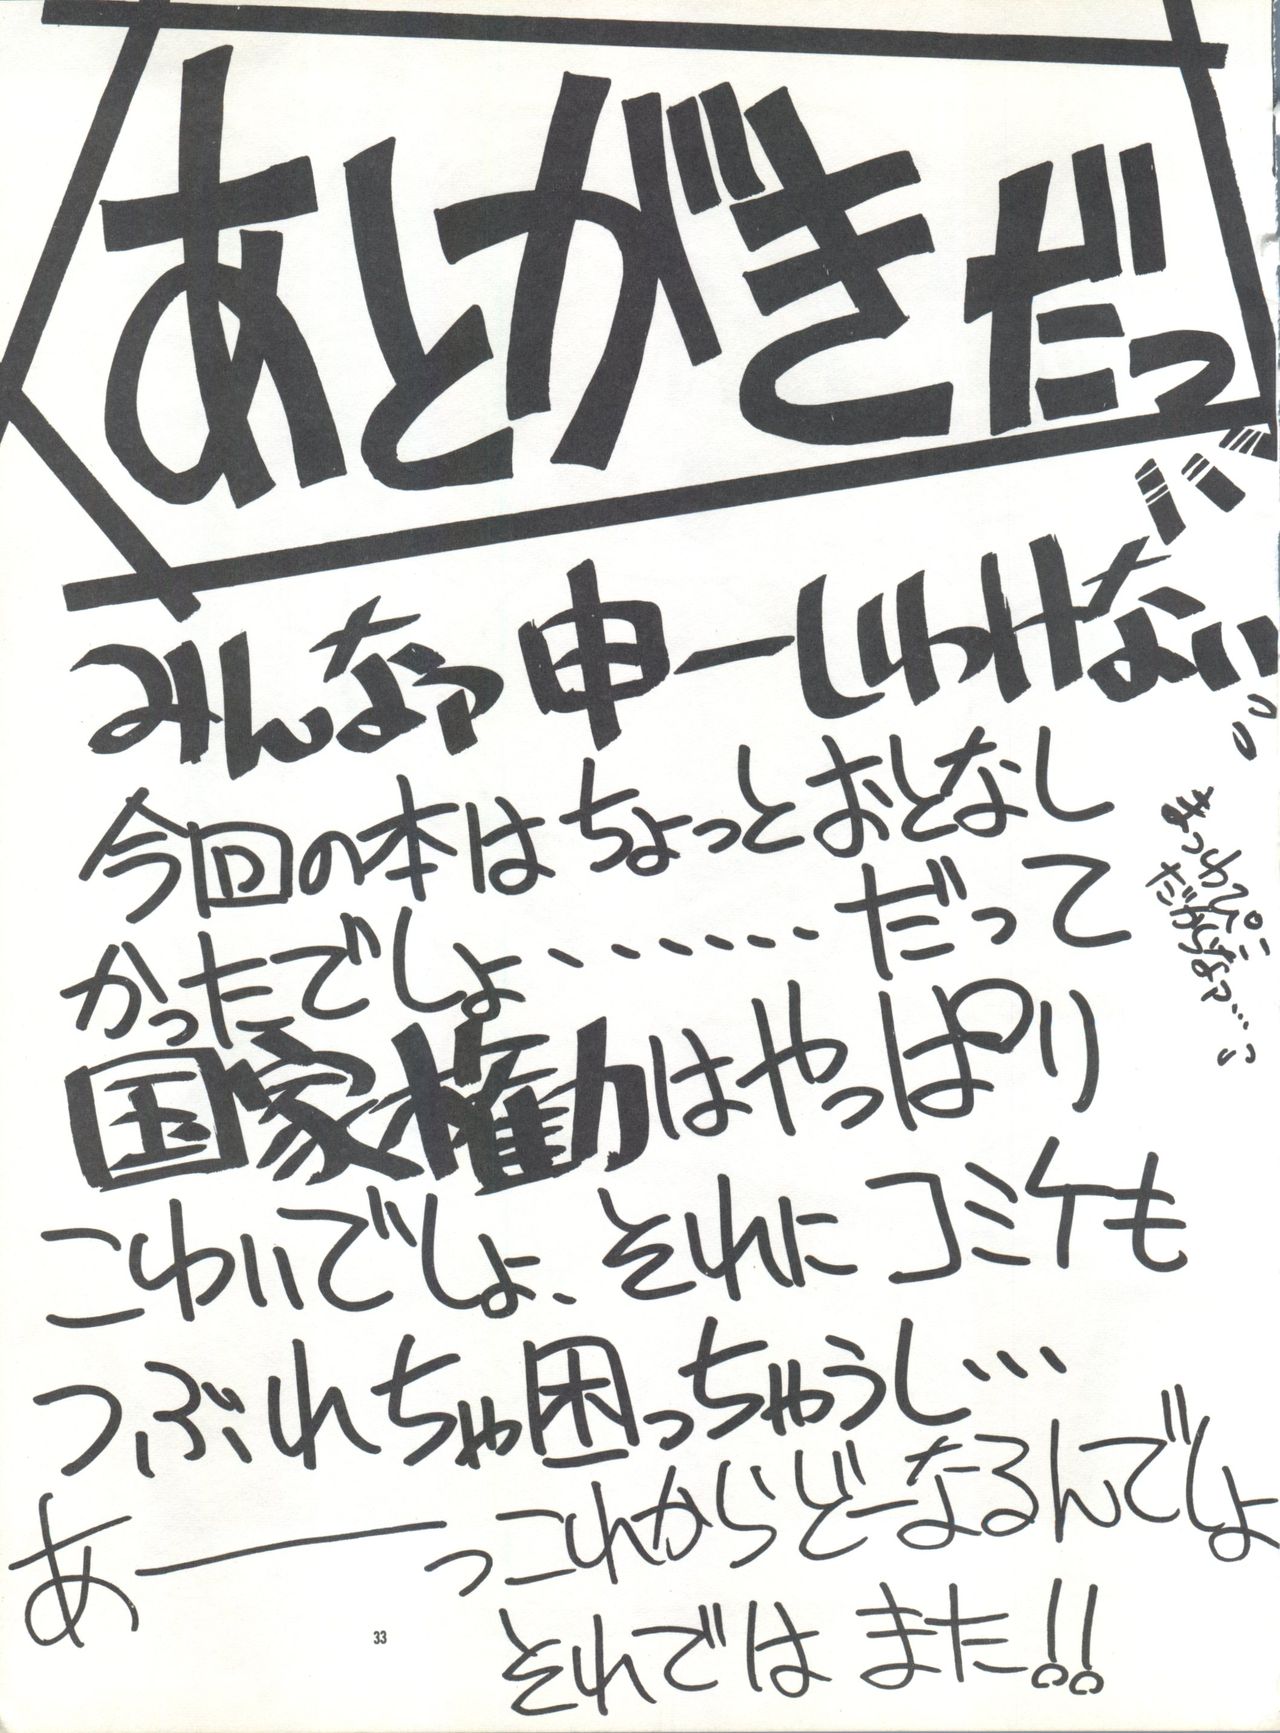 あとがきだっ
みんなァ申ーしわけない
今回の本はちょっとおとなし
かったでしょ・・・・・・・だって
国家権力はやっぱり
こわいでしょ、それにコミケも
つぶれちゃ困っちゃうし・・・
あーーっこれからどーなるんでしょ
それでは また!!
33